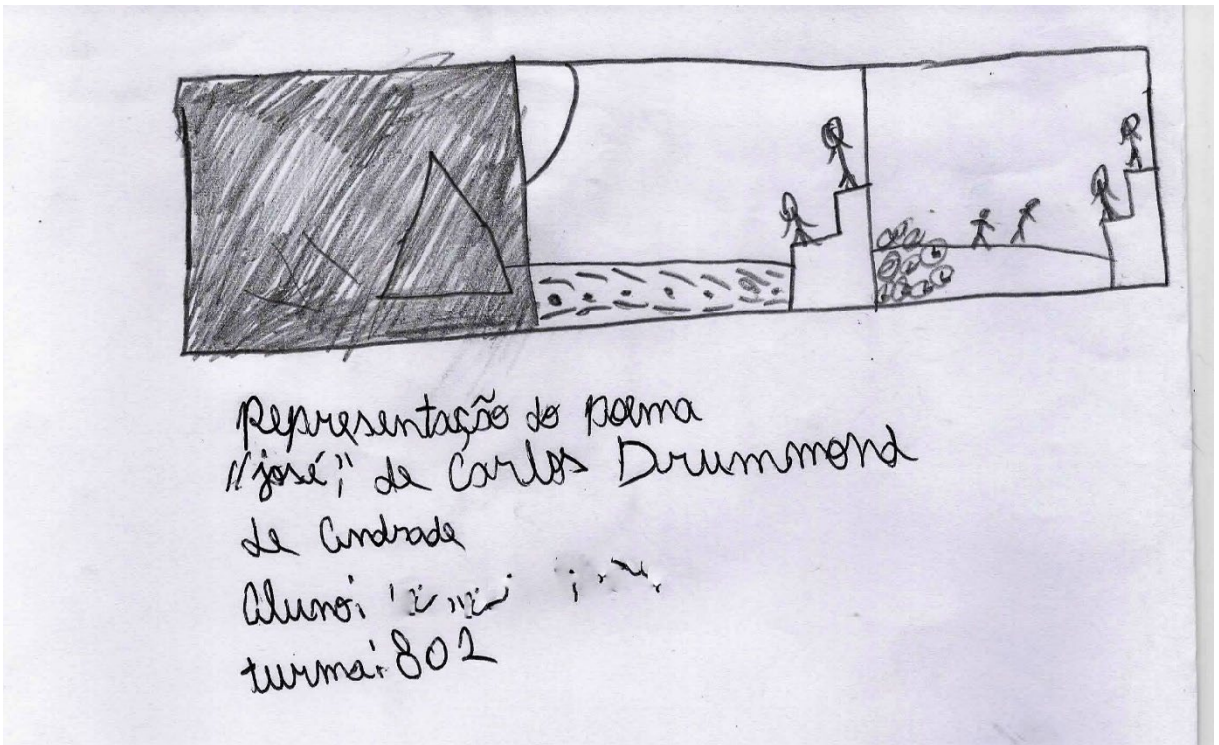 Representação do poema
"josé", de Carlos Drummond
de Andrade
Aluno:
turma: 802